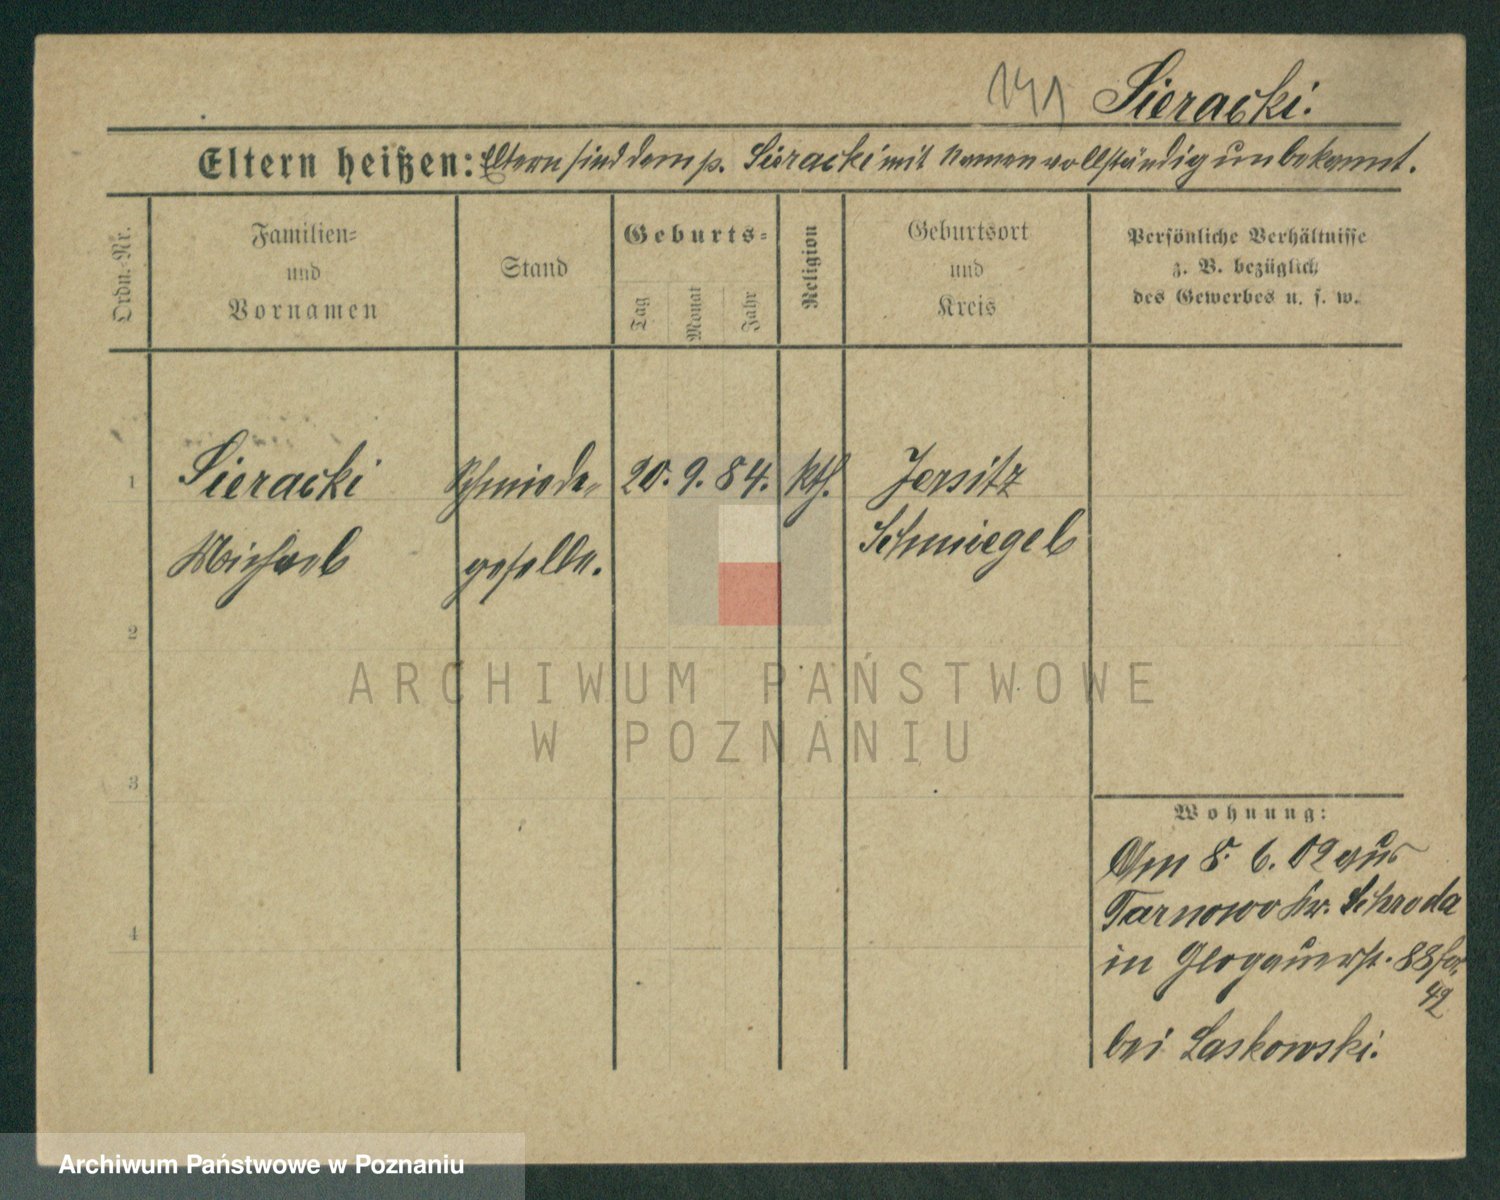 141 Sieracki.
Eltern heißen: Eltern sind dem p. Sieracki mit Namen vollständig unbekannt.
Ordn. Nr.
Familien-
und
Vornamen
Stand
Geburts-
Tag
Monat
Jahr
Religion
Geburtsort
und
Kreis
Persönliche Verhältnisse
z. B. bezüglich
des Gewerbes u. s. w.
1 Sieracki Schmiede- 20. 9. 84. kth. Jersitz
Michael geselle. Schmiegel
2
3
4
ARCHIWUM PAŃSTWOWE
W POZNANIU
Wohnung:
Am 8. 6. 02 aus
Tarnowo Kr. Schroda
in Glogauerst. 83
42
bei Laskowski.
Archiwum Państwowe w Poznaniu